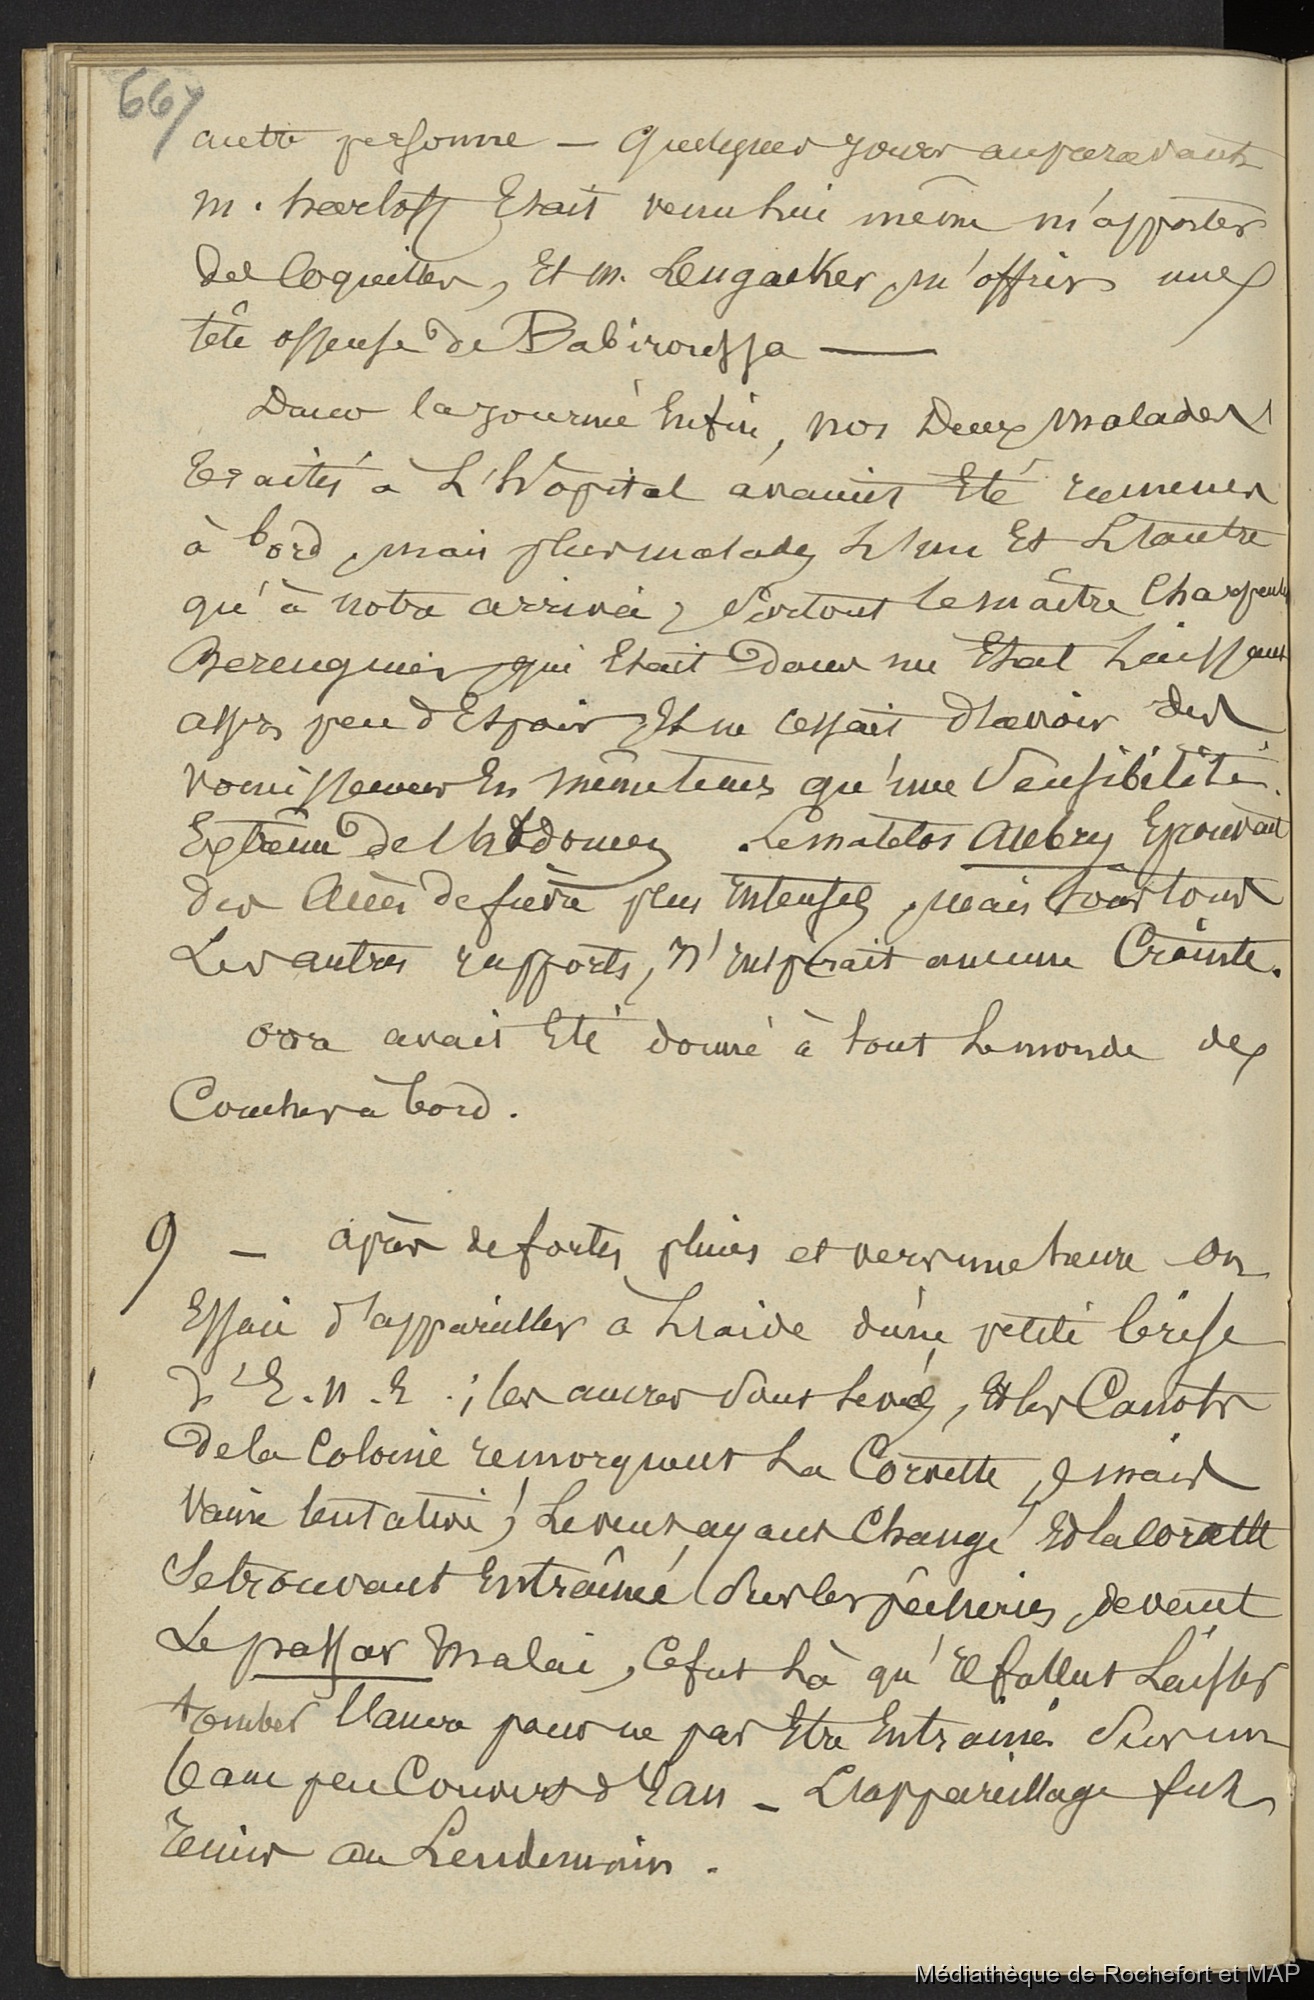 667
autre personne — Quelques jours auparavant
M. État était venu lui même m'apporter
des Coquilles, Et M. Lengacker, m'offrir une
tête osseuse de Babiroussa —
Dans la journée Enfin, nos Deux malades
traités à L'hôpital avaient Eté ramenés
à bord, mais plus malades L'un Et L'autre
qu'à notre arrivée, Surtout le maître Charpentier
Berenguier, qui Etait dans un Etat Laissant
assez peu d'Espoir, Et ne cessait d'avoir des
vomissemens En même tems qu'une Sensibilité
Extrême de l'abdomen. Le matelot Aubry Eprouvait
des Accès de fièvre plus intenses, mais sous tous
Les autres rapports, n'inspirait aucune Crainte.
ordre avait Eté donné à tout Le monde de
Coucher à bord.
9 — après de fortes pluies et vers une heure on
Essaie d'appareiller à L'aide d'une petite brise
d'E.N.E.; les ancres Sont levées, Et les Canots
de la Colonie remorquent La Corvette, mais
Vaine tentative, Le vent ayant Changé Et la corvette
Se trouvant Entraînée Sur les pêcheries, devant
Le passar Malai, Ce fut Là qu'il fallut Laisser
tomber l'ancre pour ne pas Etre Entrainé Sur un
banc peu Couvert d'Eau — L'appareillage fut
remis au Lendemain.
Médiathèque de Rochefort et MAP